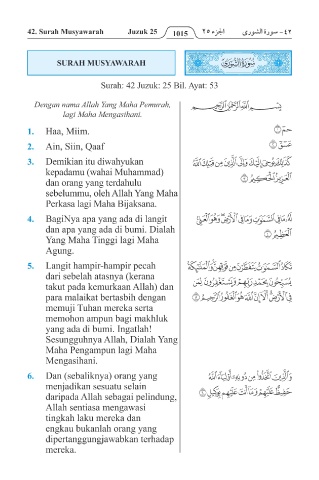 42. Surah Musyawarah Juzuk 25 1015 الجزء ٢٥ سورة الشورى – ٤٢
SURAH MUSYAWARAH سُورَةُ الشُّورَىٰ
Surah: 42 Juzuk: 25 Bil. Ayat: 53
Dengan nama Allah Yang Maha Pemurah,
lagi Maha Mengasihani.
1. Haa, Miim.
2. Ain, Siin, Qaaf
3. Demikian itu diwahyukan
kepadamu (wahai Muhammad)
dan orang yang terdahulu
sebelummu, oleh Allah Yang Maha
Perkasa lagi Maha Bijaksana.
4. BagiNya apa yang ada di langit
dan apa yang ada di bumi. Dialah
Yang Maha Tinggi lagi Maha
Agung.
5. Langit hampir-hampir pecah
dari sebelah atasnya (kerana
takut pada kemurkaan Allah) dan
para malaikat bertasbih dengan
memuji Tuhan mereka serta
memohon ampun bagi makhluk
yang ada di bumi. Ingatlah!
Sesungguhnya Allah, Dialah Yang
Maha Pengampun lagi Maha
Mengasihani.
6. Dan (sebaliknya) orang yang
menjadikan sesuatu selain
daripada Allah sebagai pelindung,
Allah sentiasa mengawasi
tingkah laku mereka dan
engkau bukanlah orang yang
dipertanggungjawabkan terhadap
mereka.
بِسْمِ اللَّهِ الرَّحْمَٰنِ الرَّحِيمِ
حمٓ ١
عٓسٓقٓ ٢
كَذَٰلِكَ يُوحِيٓ إِلَيْكَ وَإِلَى ٱلَّذِينَ مِن قَبْلِكَ ٱللَّهُ
ٱلْعَزِيزُ ٱلْحَكِيمُ ٣
لَهُۥ مَا فِي ٱلسَّمَٰوَٰتِ وَمَا فِي ٱلْأَرْضِ وَهُوَ ٱلْعَلِيُّ
ٱلْعَظِيمُ ٤
تَكَادُ ٱلسَّمَٰوَٰتُ يَتَفَطَّرْنَ مِن فَوْقِهِنَّ وَٱلْمَلَٰٓئِكَةُ
يُسَبِّحُونَ بِحَمْدِ رَبِّهِمْ وَيَسْتَغْفِرُونَ لِمَن
فِي ٱلْأَرْضِ أَلَآ إِنَّ ٱللَّهَ هُوَ ٱلْغَفُورُ ٱلرَّحِيمُ ٥
وَٱلَّذِينَ ٱتَّخَذُواْ مِن دُونِهِۦٓ أَوْلِيَآءَ ٱللَّهُ
حَفِيظٌ عَلَيْهِمْ وَمَآ أَنتَ عَلَيْهِم بِوَكِيلٍ ٦